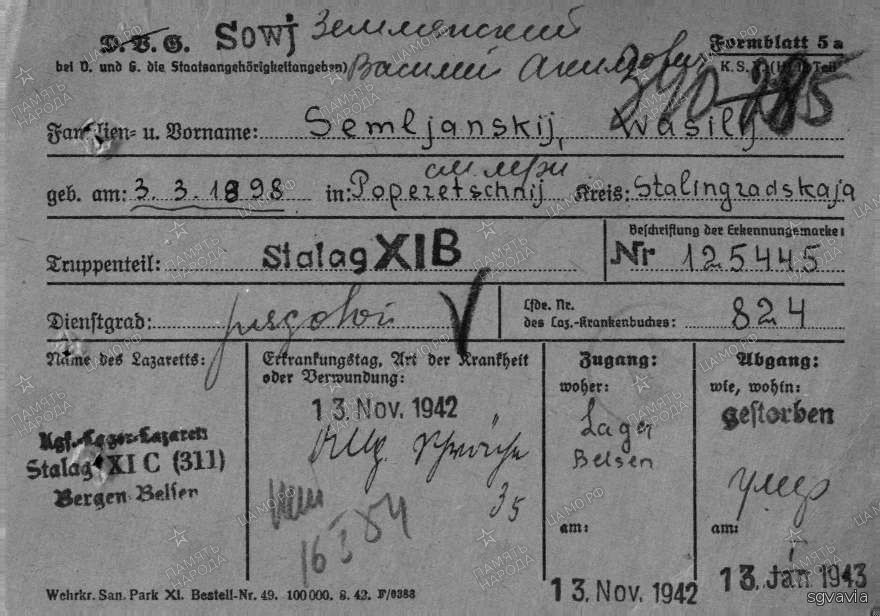 D.V.G. Sowj Землянский
Formblatt 5a
bei V. und G. die Staatsangehörigkeitangeben) Василий
Familien- u. Vorname: Semljanskij, Wasilij
geb. am: 3. 3. 1898 in: Poperetschnij Kreis: Stalingradskaja
Beschriftung der Erkennungsmarke:
Truppenteil: Stalag XI B Nr 125445
Dienstgrad: рядовой
Lfde. Nr.
des Laz.-Krankenbuches: 824
Name des Lazaretts:
Kgf.-Lager-Lazarett
Stalag XI C (311)
Bergen Belsen
Erkrankungstag, Art der Krankheit
oder Verwundung:
13. Nov. 1942
Allg. Schwäche
35
Zugang:
woher:
Lager
Belsen
am:
13. Nov. 1942
Abgang:
wie, wohin:
gestorben
умер
am:
13. Jan. 1943
Wehrkr. San. Park XI. Bestell-Nr. 49. 100000. 8. 42. F/0388
ПАМЯТЬ НАРОДА
ЦАМО.РФ
sgvavia